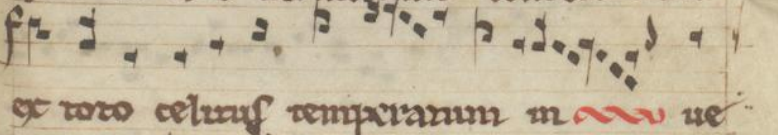 ex toto celitus temperatum in ue